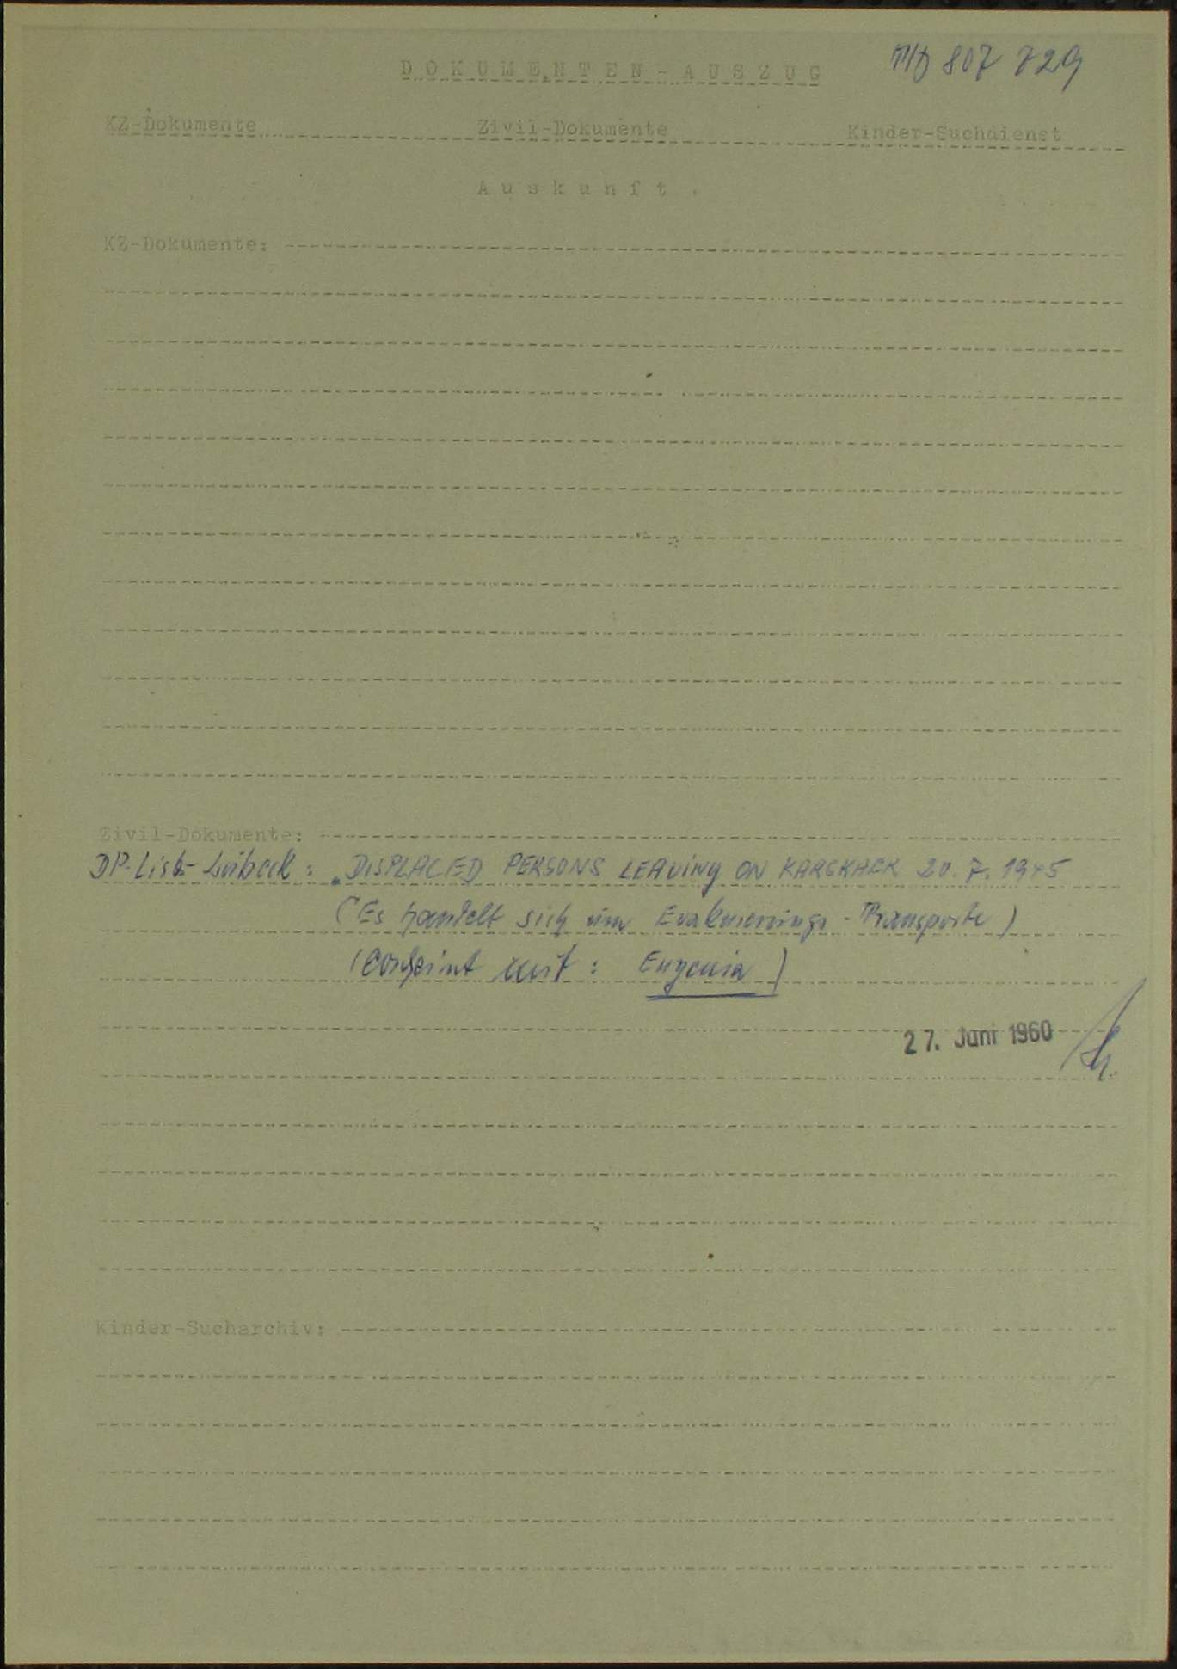 T/D 807 729
DOKUMENTEN-AUSZUG
KZ-Dokumente Zivil-Dokumente Kinder-Suchdienst
Auskunft.
KZ-Dokumente:
Zivil-Dokumente:
DP-Liste Lübeck: "DISPLACED PERSONS LEAVING ON 20.7.1945
(Es handelt sich um Evakuierungs-Transporte)
(Erscheint mit: Eugenia)
27. Juni 1960
Kinder-Sucharchiv: